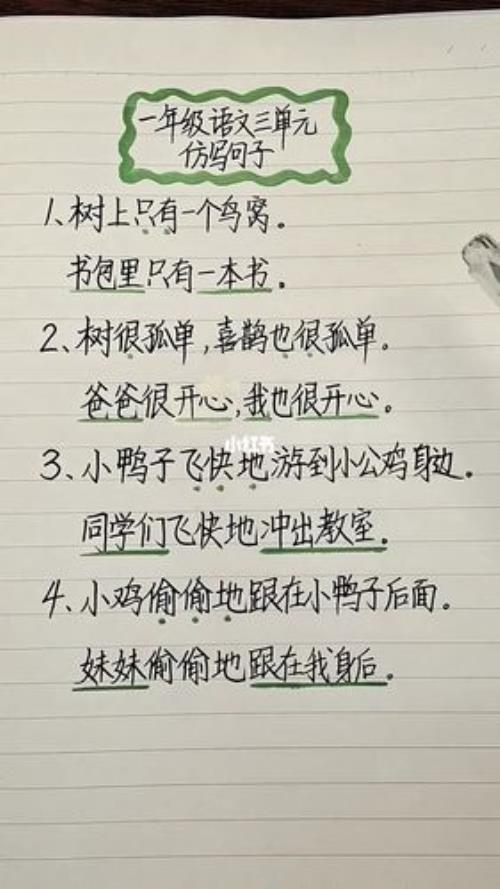 一年级语文三单元
仿写句子
1、树上只有一个鸟窝。
书包里只有一本书。
2、树很孤单,喜鹊也很孤单。
爸爸很开心,我也很开心。
小红书
3、小鸭子飞快地游到小公鸡身边.
同学们飞快地冲出教室.
4、小鸡偷偷地跟在小鸭子后面.
妹妹偷偷地跟在我身后.